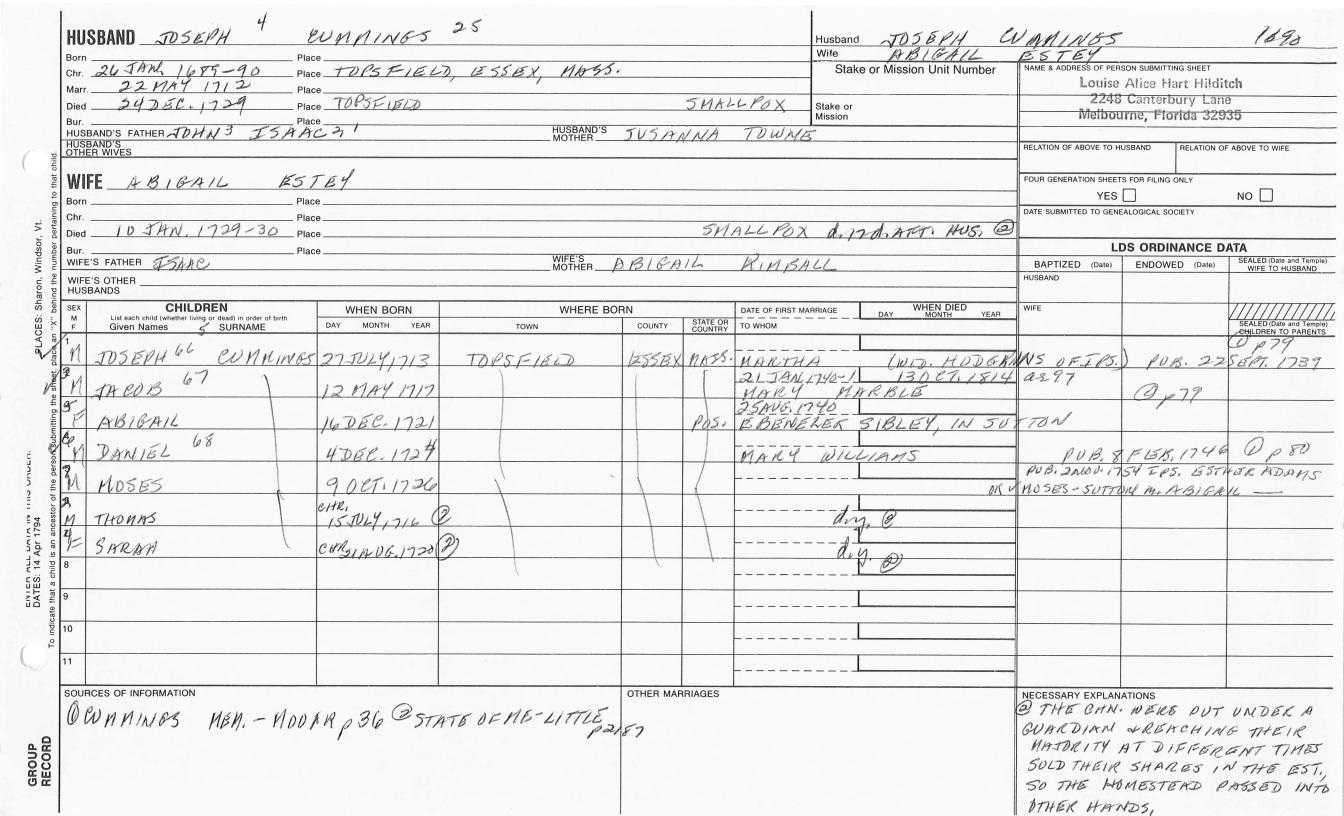 HUSBAND JOSEPH 4 CUMMINGS 25
Husband JOSEPH CUMMINGS 1690
Wife ABIGAIL ESTEY
Born Place
Chr. 26 JAN. 1689-90 Place TOPSFIELD, ESSEX, MASS.
Marr. 22 MAY 1712 Place
Died 24 DEC. 1729 Place TOPSFIELD SMALLPOX
Bur. Place
HUSBAND'S FATHER JOHN 3 ISAAC 2 1 HUSBAND'S MOTHER SUSANNA TOWNE
HUSBAND'S OTHER WIVES
Stake or Mission Unit Number
Stake or Mission
NAME & ADDRESS OF PERSON SUBMITTING SHEET
Louise Alice Hart Hilditch
2248 Canterbury Lane
Melbourne, Florida 32935
RELATION OF ABOVE TO HUSBAND RELATION OF ABOVE TO WIFE
FOUR GENERATION SHEETS FOR FILING ONLY
YES NO
DATE SUBMITTED TO GENEALOGICAL SOCIETY
WIFE ABIGAIL ESTEY
Born Place
Chr. Place
Died 10 JAN. 1729-30 Place SMALLPOX d. 17d. AFT. HUS. ②
Bur. Place
WIFE'S FATHER ISAAC WIFE'S MOTHER ABIGAIL KIMBALL
WIFE'S OTHER HUSBANDS
LDS ORDINANCE DATA
BAPTIZED (Date) ENDOWED (Date) SEALED (Date and Temple) WIFE TO HUSBAND
HUSBAND
WIFE
SEALED (Date and Temple) CHILDREN TO PARENTS
SEX M F
CHILDREN
List each child (whether living or dead) in order of birth
Given Names 5 SURNAME
WHEN BORN
DAY MONTH YEAR
WHERE BORN
TOWN COUNTY STATE OR COUNTRY
DATE OF FIRST MARRIAGE
TO WHOM
WHEN DIED
DAY MONTH YEAR
① p79
1 M JOSEPH 66 CUMMINGS 27 JULY, 1713 TOPSFIELD ESSEX MASS. MARTHA (WID. HODGKINS OF IPS.) PUB. 22 SEPT. 1739
21 JAN, 1740-1 13 OCT. 1814 ae 97
3 M JACOB 67 12 MAY 1717 MARY MARBLE ① p79
25 AUG. 1740
5 F ABIGAIL 16 DEC. 1721 POS. EBENEZER SIBLEY, IN SUTTON
6 M DANIEL 68 4 DEC. 1724 MARY WILLIAMS PUB. 8 FEB. 1746 ① p80
PUB. 2 NOV. 1754 IPS. ESTHER ADAMS
7 M MOSES 9 OCT. 1726 OR MOSES - SUTTON M. ABIGAIL —
2 M THOMAS CHR. 15 JULY, 1716 ② d.y. ②
4 F SARAH CHR. 21 AUG. 1720 ② d.y. ②
8
9
10
11
SOURCES OF INFORMATION
① CUMMINGS MEM. - MOOAR p36 ② STATE OF ME - LITTLE
p2187
OTHER MARRIAGES
NECESSARY EXPLANATIONS
② THE CHN. WERE PUT UNDER A
GUARDIAN & REACHING THEIR
MAJORITY AT DIFFERENT TIMES
SOLD THEIR SHARES IN THE EST.,
SO THE HOMESTEAD PASSED INTO
OTHER HANDS,
PLACES: Sharon, Windsor, Vt.
ENTER ALL DATA IN THIS ORDER:
DATES: 14 Apr 1794
To indicate that a child is an ancestor of the person submitting the sheet, place an "X" behind the number pertaining to that child.
GROUP RECORD